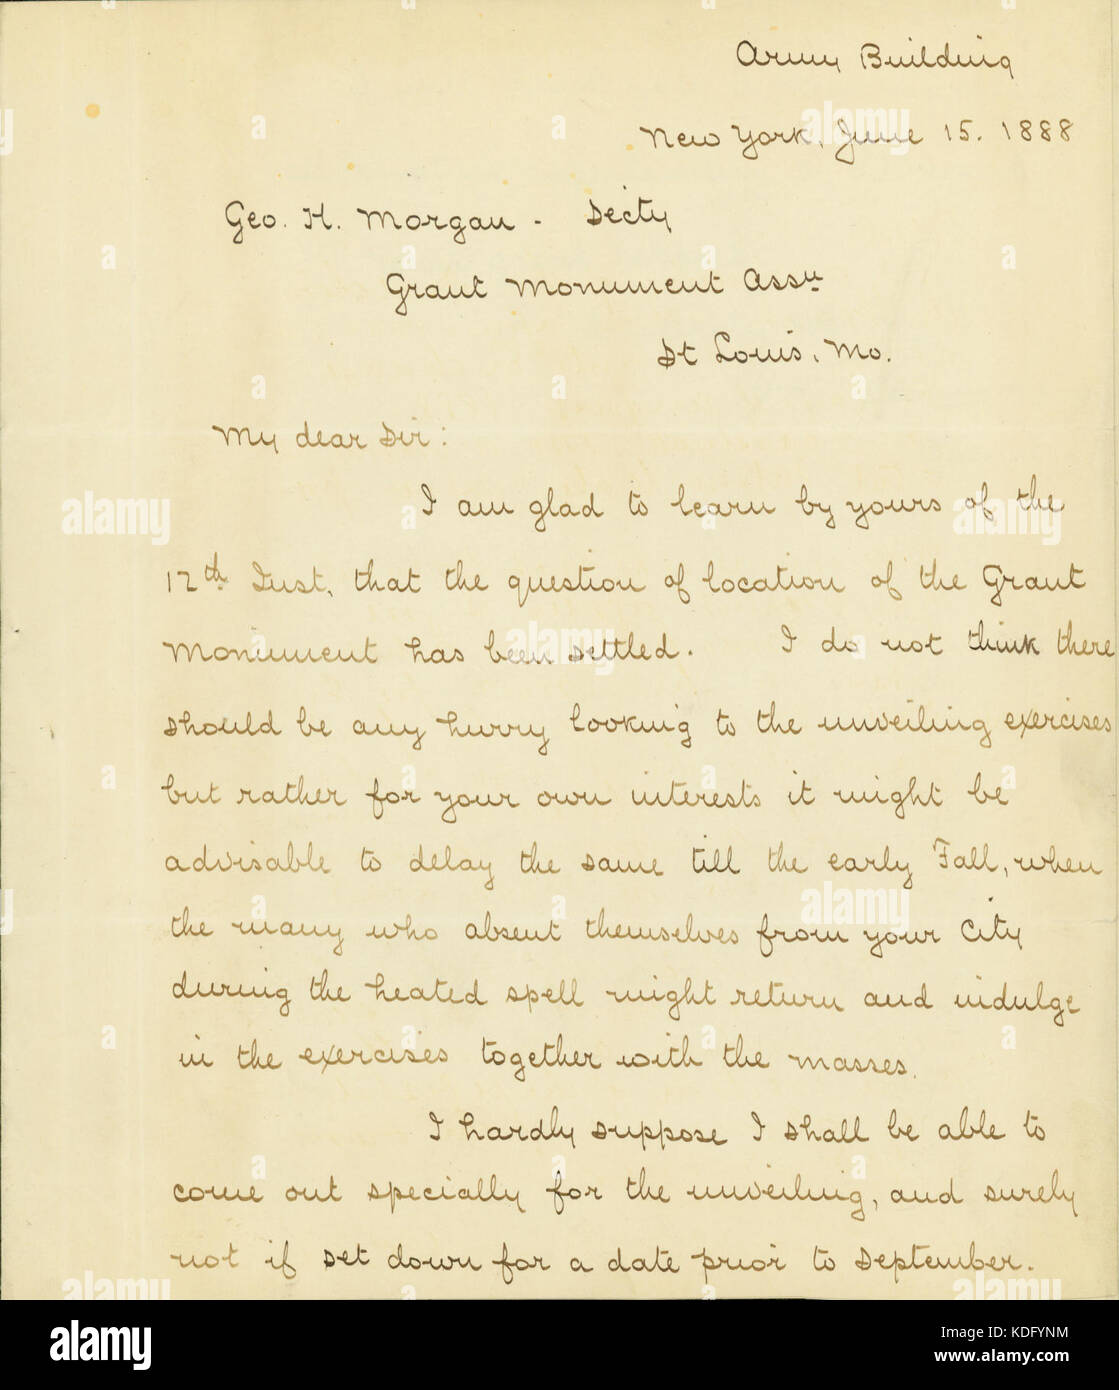 Army Building
New York, June 15. 1888
Geo. H. Morgan - Secty
Grant Monument Assn
St Louis, Mo.
My dear Sir:
I am glad to learn by yours of the
12th Inst, that the question of location of the Grant
Monument has been settled. I do not think there
should be any hurry looking to the unveiling exercises
but rather for your own interests it might be
advisable to delay the same till the early Fall, when
the many who absent themselves from your City
during the heated spell might return and indulge
in the exercises together with the masses.
I hardly suppose I shall be able to
come out specially for the unveiling, and surely
not if set down for a date prior to September.
alamy
Image ID: KDFYNM
www.alamy.com